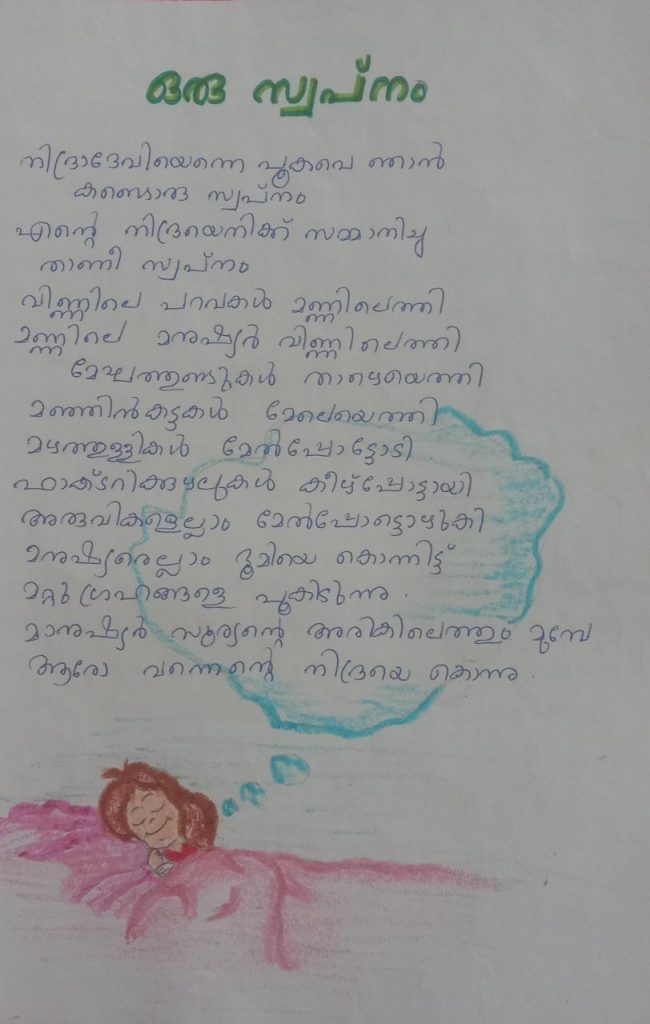 ഒരു സ്വപ്നം
നിദ്രാദേവിയെന്നെ പൂകവെ ഞാൻ
കണ്ടൊരു സ്വപ്നം
എന്റെ നിദ്രയെനിക്ക് സമ്മാനിച്ച
താണീ സ്വപ്നം
വിണ്ണിലെ പറവകൾ മണ്ണിലെത്തി
മണ്ണിലെ മനുഷ്യർ വിണ്ണിലെത്തി
മേഘത്തുണ്ടുകൾ താഴെയെത്തി
മഞ്ഞിൻകട്ടകൾ മേലെയെത്തി
മഴത്തുള്ളികൾ മേൽപ്പോട്ടോടി
ഫാക്ടറിക്കുഴലുകൾ കീഴ്പ്പോട്ടായി
അരുവികളെല്ലാം മേൽപ്പോട്ടൊഴുകി
മനുഷ്യരെല്ലാം ഭൂമിയെ കൊന്നിട്ട്
മറ്റു ഗ്രഹങ്ങളെ പൂകിടുന്നു.
മാനുഷ്യർ സൂര്യന്റെ അരികിലെത്തും മുമ്പേ
ആരോ വന്നെന്റെ നിദ്രയെ കൊന്നു.